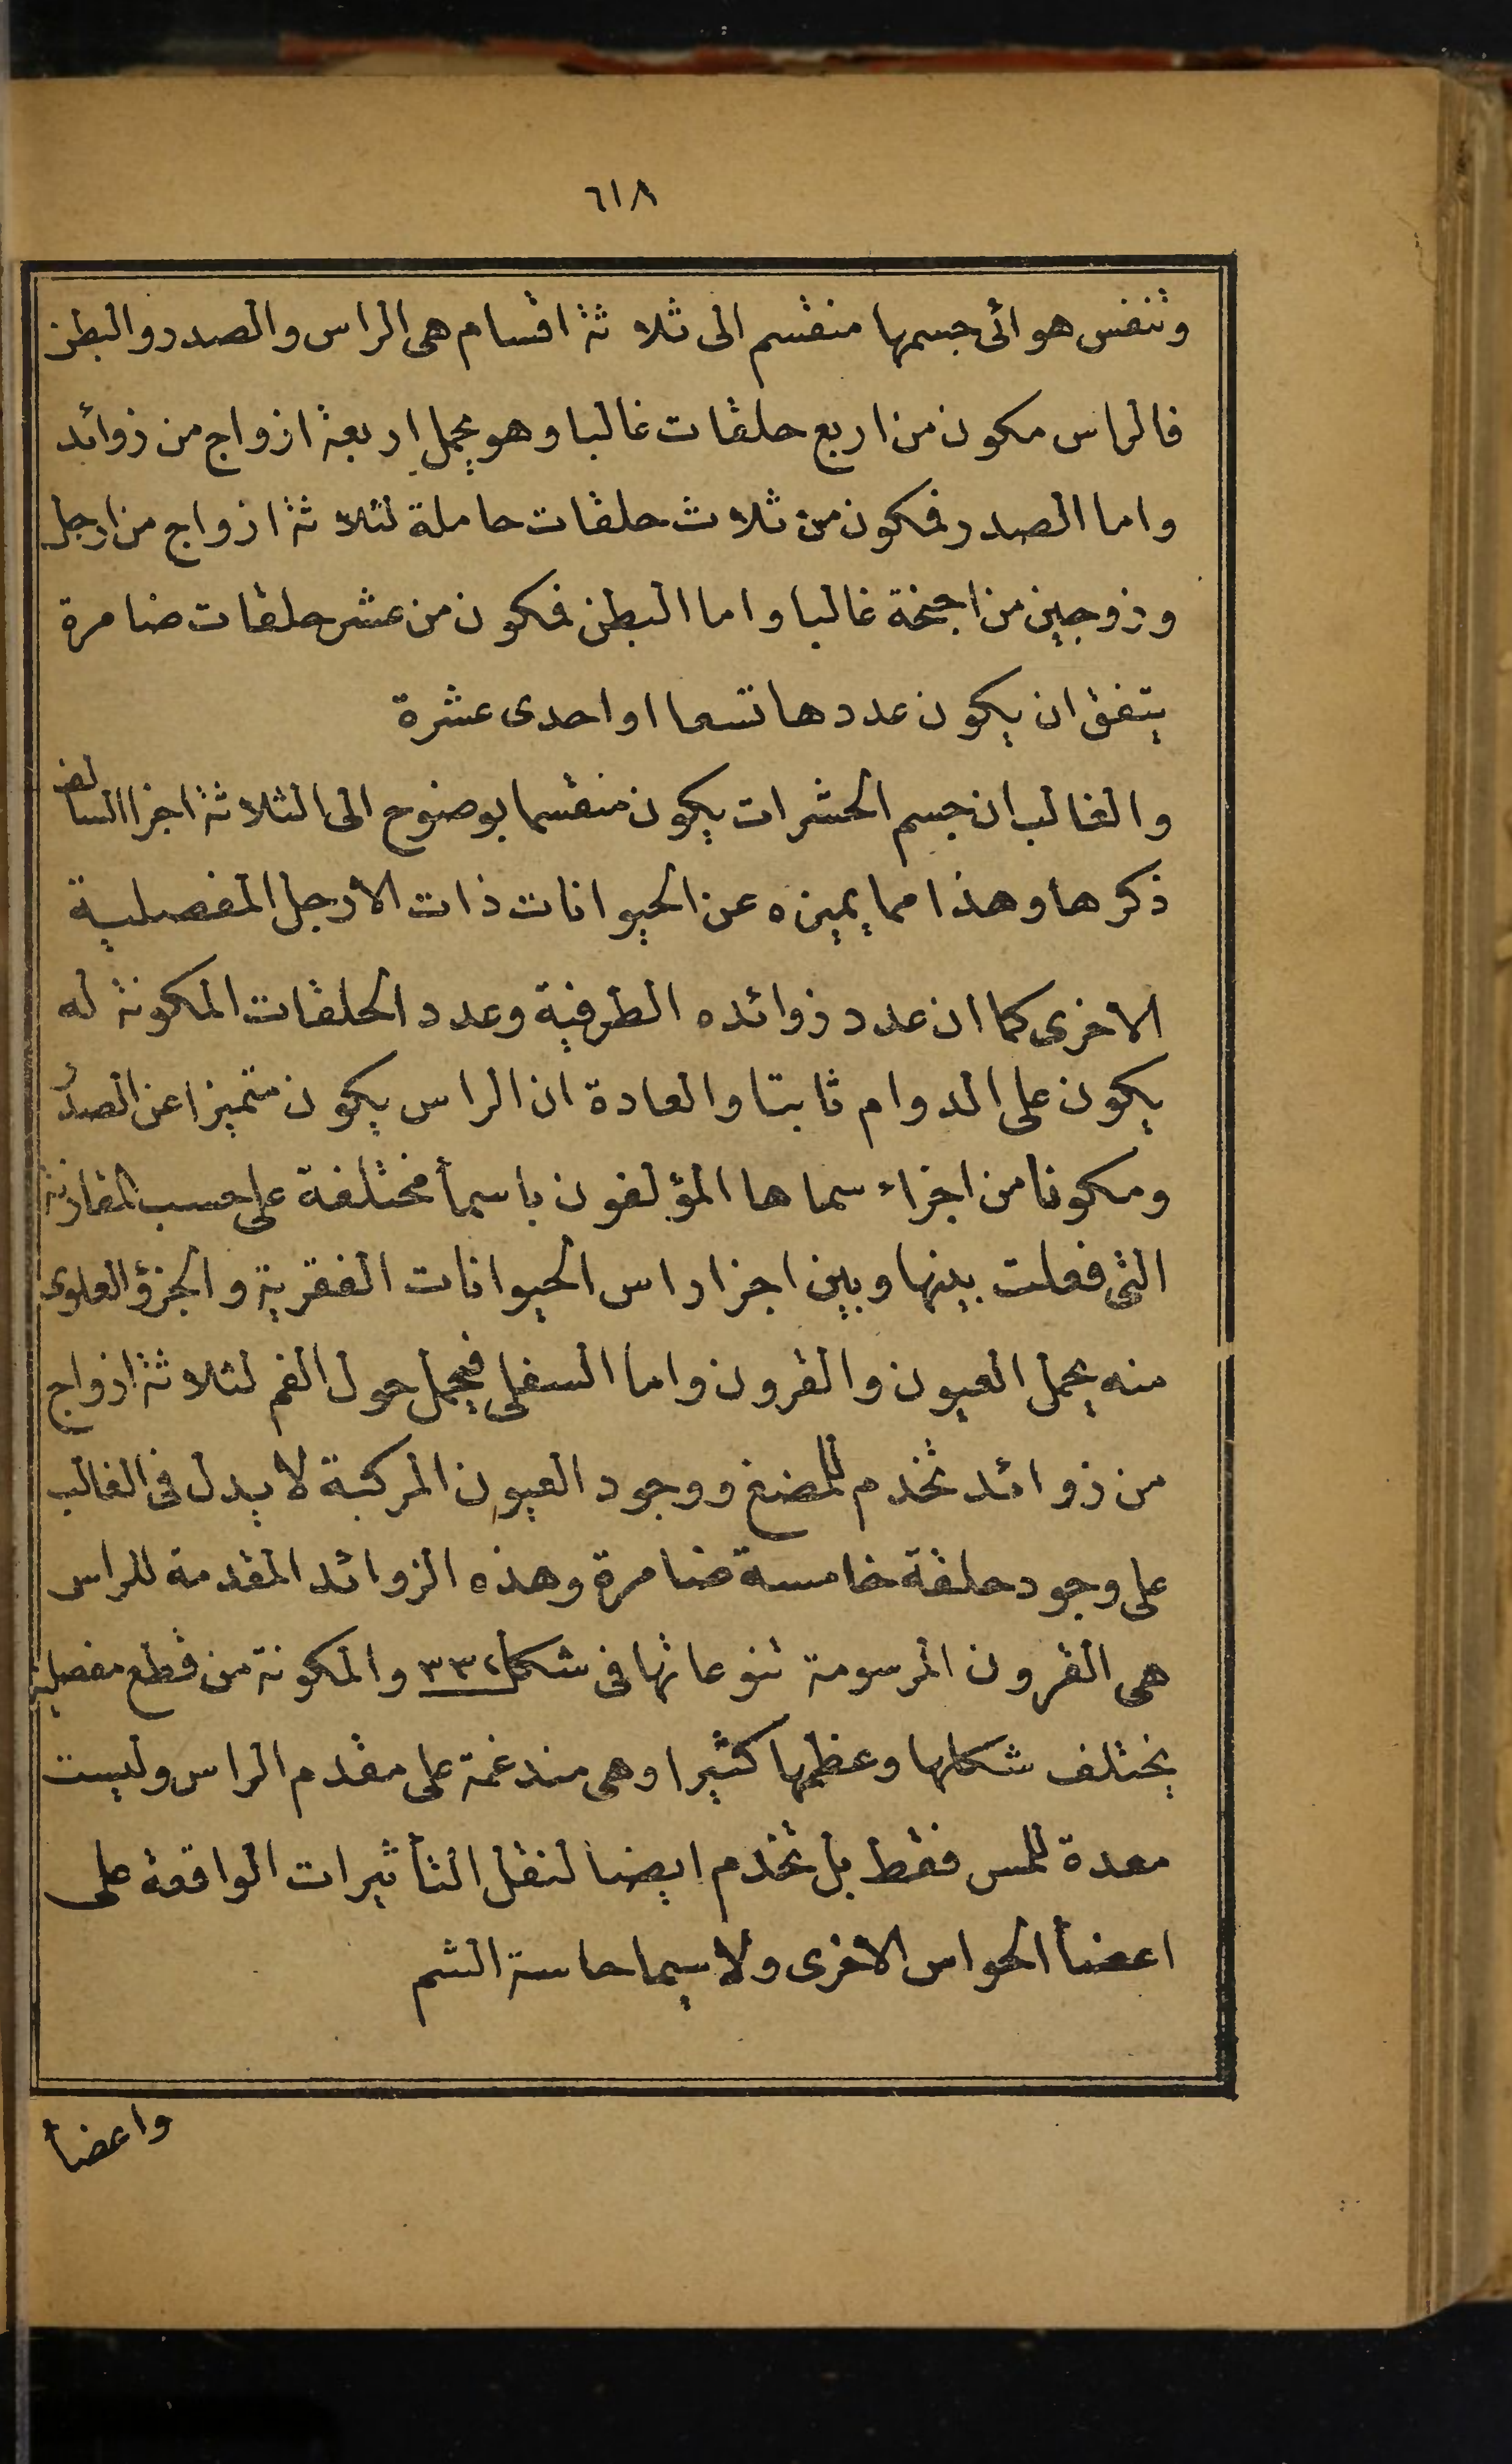 ٦١٨
وتنفس هوائى جسمها منقسم الى ثلاثة اقسام هى الراس والصدر والبطن
فالراس مكون من اربع حلقات غالبا وهو يحمل اربعة ازواج من زوائد
واما الصدر فمكون من ثلاث حلقات حاملة لثلاثة ازواج من ارجل
وزوجين من اجنحة غالبا واما البطن فمكون من عشر حلقات ضامرة
يتفق ان يكون عددها تسعا او احدى عشرة
والغالب ان جسم الحشرات يكون منقسما بوضوح الى الثلاثة اجزا السالف
ذكرها وهذا مما يميزه عن الحيوانات ذات الأرجل المفصلية
الاخرى كما ان عدد زوائده الطرفية وعدد الحلقات المكونة له
يكون على الدوام ثابتا والعادة ان الراس يكون متميزا عن الصدر
ومكونا من اجزاء سماها المؤلفون باسمأ مختلفة على حسب المقارنة
التى فعلت بينها وبين اجزا راس الحيوانات الفقرية والجزؤ العلوى
منه يحمل العيون والقرون واما السفلى فيحمل حول الفم لثلاثة ازواج
من زوائد تخدم للمضغ ووجود العيون المركبة لا يدل فى الغالب
على وجود حلقة خامسة ضامرة وهذه الزوائد المقدمة للراس
هى القرون المرسومة تنوعاتها فى شكل ٣٣٢ والمكونة من قطع مفصلية
يختلف شكلها وعظمها كثيرا وهى مندغمة على مقدم الراس وليست
معدة للمس فقط بل تخدم ايضا لنقل التأثيرات الواقعة على
اعضأ الحواس الاخرى ولا سيما حاسة الشم
واعضأ